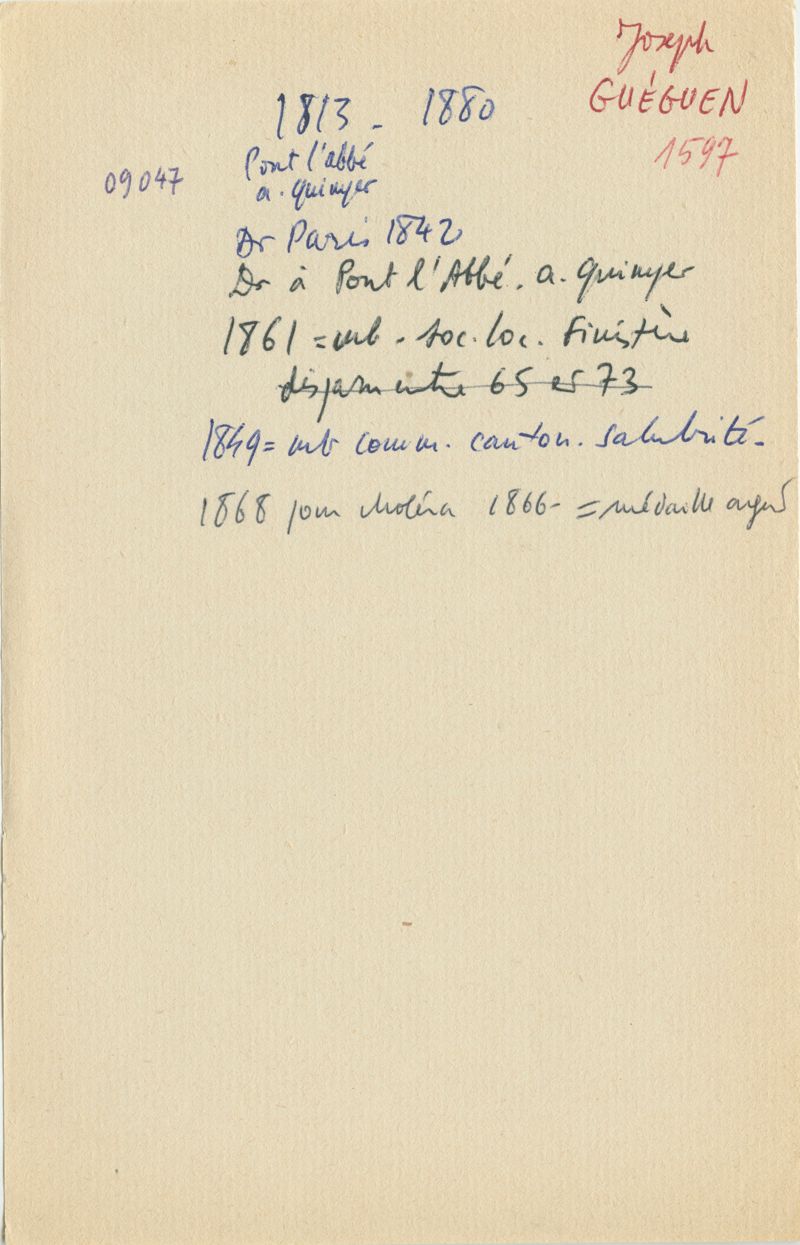 Joseph
GUÉGUEN
1597
1813 - 1880
09047
Pont l'abbé
a. Quimper
Dr Paris 1842
Dr à Pont l'Abbé. a. Quimper
1861 = mb - soc. loc. Finistère
disparu entre 65 et 73
1849 = mb comm. canton. salubrité -
1868 pour choléra 1866 - = médaille argent